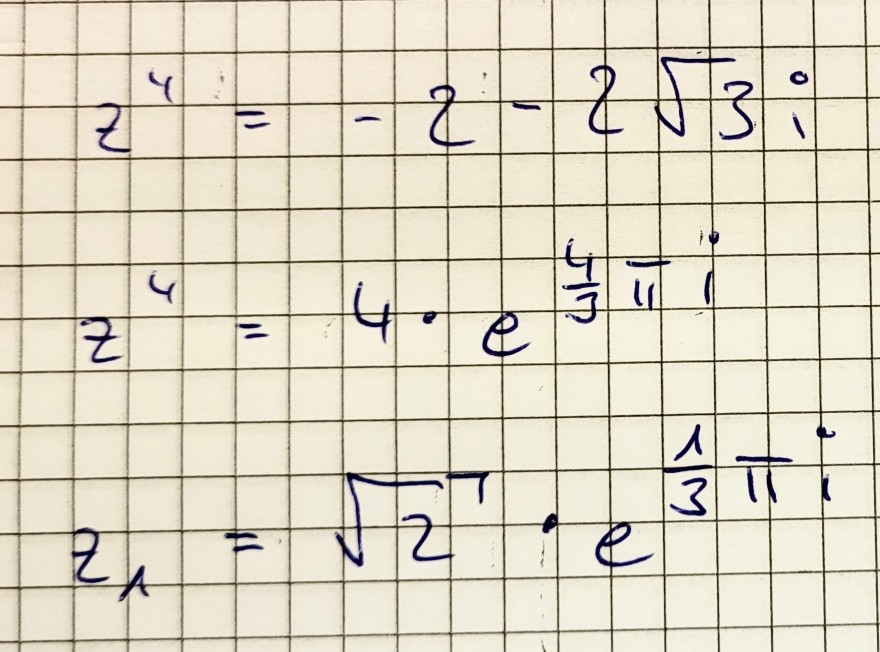 z⁴ = - 2 - 2√3 i
z⁴ = 4 · e^(4/3 π i)
z₁ = √2 · e^(1/3 π i)